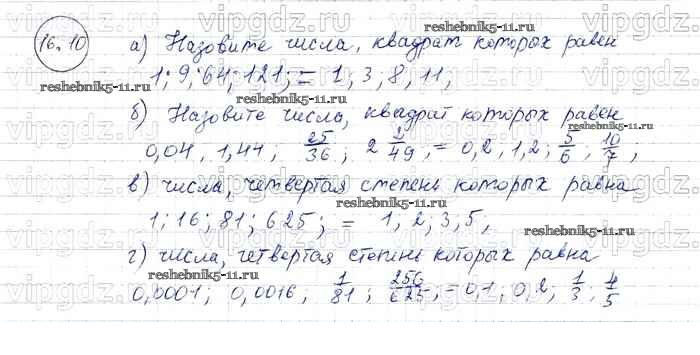 16.10
а) Назовите числа, квадрат которых равен
1; 9; 64; 121; = 1, 3, 8, 11,
б) Назовите числа, квадрат которых равен
0,04, 1,44; 25/36; 2 2/49, = 0,2, 1,2; 5/6, 10/7;
в) числа, четвертая степень которых равна
1; 16; 81; 625; = 1, 2, 3, 5,
г) числа, четвертая степень которых равна
0,0001; 0,0016, 1/81; 256/625, = 0,1, 0,2, 1/3; 4/5
vipgdz.ru vipgdz.ru vipgdz.ru
reshebnik5-11.ru
reshebnik5-11.ru
reshebnik5-11.ru
reshebnik5-11.ru
reshebnik5-11.ru
reshebnik5-11.ru